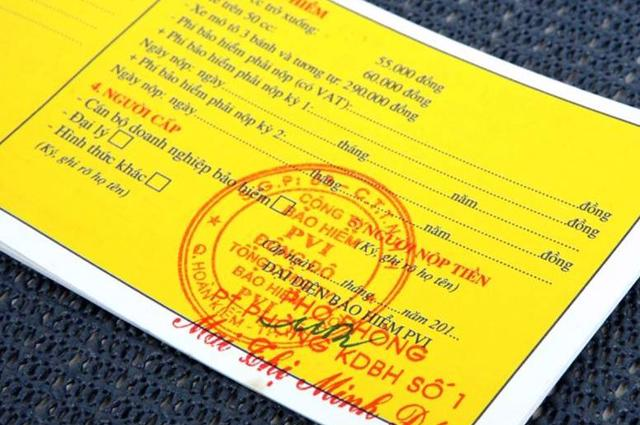 HIỂM
cc trở xuống: 55.000 đồng
trên 50 cc: 60.000 đồng
- Xe mô tô 3 bánh và tương tự: 290.000 đồng
+ Phí bảo hiểm phải nộp (có VAT):............đồng
Ngày nộp: ngày............tháng............năm............
+ Phí bảo hiểm phải nộp kỳ 1:............đồng
Ngày nộp: ngày............tháng............năm............
+ Phí bảo hiểm phải nộp kỳ 2............đồng
Ngày nộp: ngày............tháng............năm............
4. NGƯỜI CẤP
- Cán bộ doanh nghiệp bảo hiểm □
- Đại lý □
- Hình thức khác □
(Ký, ghi rõ họ tên)
NGƯỜI NỘP TIỀN
(Ký, ghi rõ họ tên)
tháng......năm 201...
ĐẠI DIỆN BẢO HIỂM PVI
CÔNG TY
BẢO HIỂM
PVI
ĐÔNG ĐÔ
TỔNG
BẢO HIỂM
PVI
Q. HOÀN KIẾM
PHÓ PHÒNG
PT PHÒNG KDBH SỐ 1
Mai Thị Minh